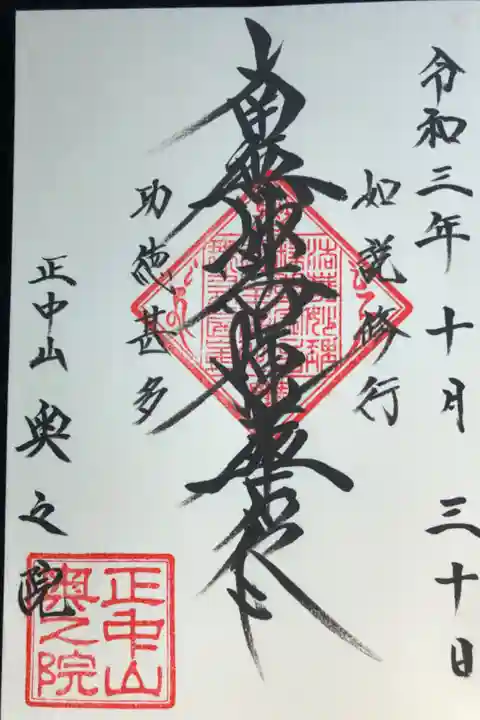 令和三年十月三十日
如説修行
南無妙法蓮華経
功徳甚多
正中山 奥之院
正中山
奥之院